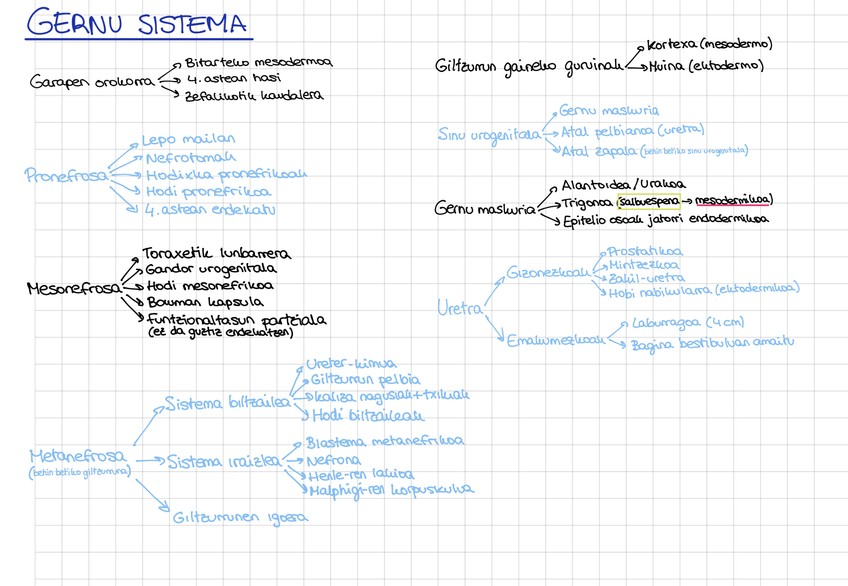 GERNU SISTEMA
Garapen orokorra
Bitarteko mesodermoa
4. astean hasi
Zefalikotik kaudalera
Pronefrosa
Lepo mailan
Nefrotomak
Hodixka pronefrikoak
Hodi pronefrikoa
4. astean endekatu
Mesonefrosa
Toraxetik lunbarrera
Gandor urogenitala
Hodi mesonefrikoa
Bowman kapsula
Funtzionaltasun partziala
(ez da guztiz endekatzen)
Metanefrosa
(behin betiko giltzurruna)
Sistema biltzailea
Ureter-kimua
Giltzurrun pelbia
Kaliza nagusiak + txikiak
Hodi biltzaileak
Sistema iraizlea
Blastema metanefrikoa
Nefrona
Henle-ren lakioa
Malphigi-ren korpuskulua
Giltzurrunen igoera
Giltzurrun gaineko guruinak
Kortexa (mesodermo)
Muina (ektodermo)
Sinu urogenitala
Gernu maskuria
Atal pelbianoa (uretra)
Atal zapala (behin betiko sinu urogenitala)
Gernu maskuria
Alantoidea/Urakoa
Trigonoa (salbuespena → mesodermikoa)
Epitelio osoak jatorri endodermikoa
Uretra
Gizonezkoak
Prostatikoa
Mintzezkoa
Zakil-uretra
Hobi nabikularra (ektodermikoa)
Emakumezkoak
Laburragoa (4 cm)
Bagina bestibuluan amaitu